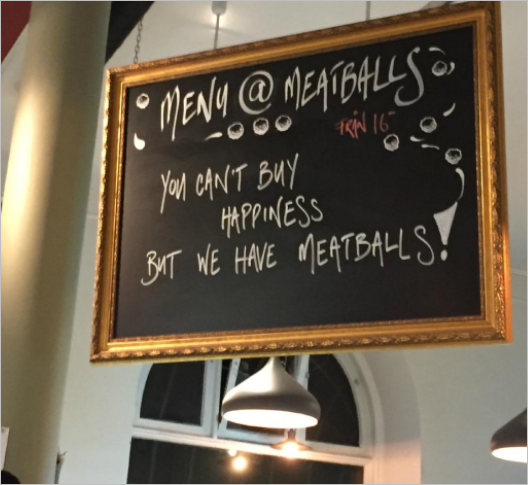 MENU @ MEATBALLS
FRÅN 16
YOU CAN'T BUY
HAPPINESS
BUT WE HAVE MEATBALLS!